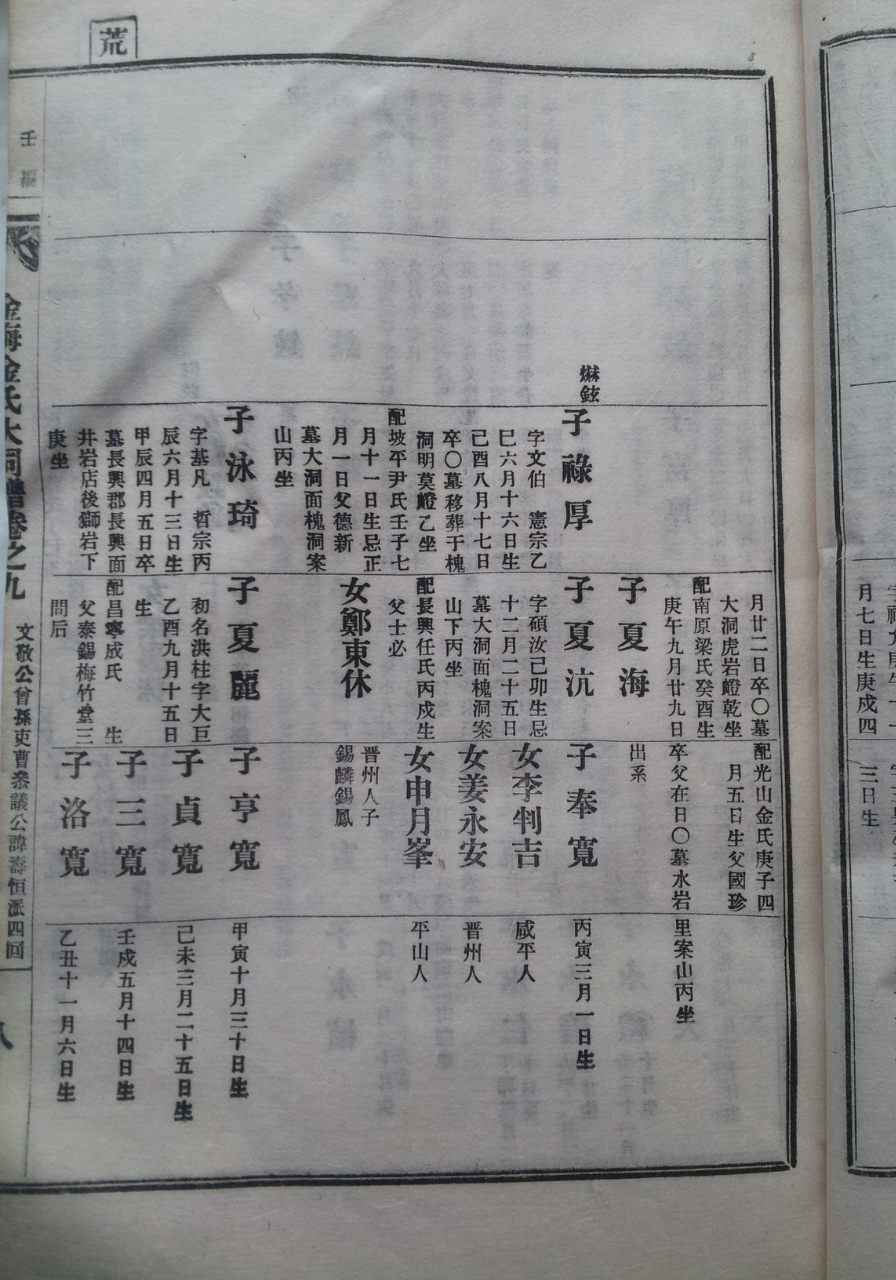 荒
月廿二日卒〇墓
大洞虎岩嶝乾坐
配南原梁氏癸酉生
庚午九月廿九日
子夏海
子夏沆
字碩汝己卯生忌
十二月二十五日
墓大洞面槐洞案
山下丙坐
配長興任氏丙戍生
父士必
女鄭東休
子夏麗
初名洪柱字大巨
乙酉九月十五日
生
配昌寧成氏　生
父泰錫梅竹堂三
問后
子祿厚
字文伯　憲宗乙
巳六月十六日生
己酉八月十七日
卒〇墓移葬于槐
洞明莫嶝乙坐
配坡平尹氏壬子七
月十一日生忌正
月一日父德新
墓大洞面槐洞案
山丙坐
子泳琦
字基凡　哲宗丙
辰六月十三日生
甲辰四月五日卒
墓長興郡長興面
井岩店後獅岩下
庚坐
配光山金氏庚子四
月五日生父國珍
卒父在日〇墓水岩
出系
子奉寬
女李判吉
女姜永安
女申月峯
晋州人子
錫麟錫鳳
子亨寬
子貞寬
子三寬
子洛寬
里案山丙坐
丙寅三月一日生
咸平人
晋州人
平山人
甲寅十月三十日生
己未三月二十五日生
壬戍五月十四日生
乙丑十一月六日生
金海金氏大同譜卷之九
文敬公曾孫吏曹叅議公諱壽恒派四回
八
月七日生庚戍四
三日生